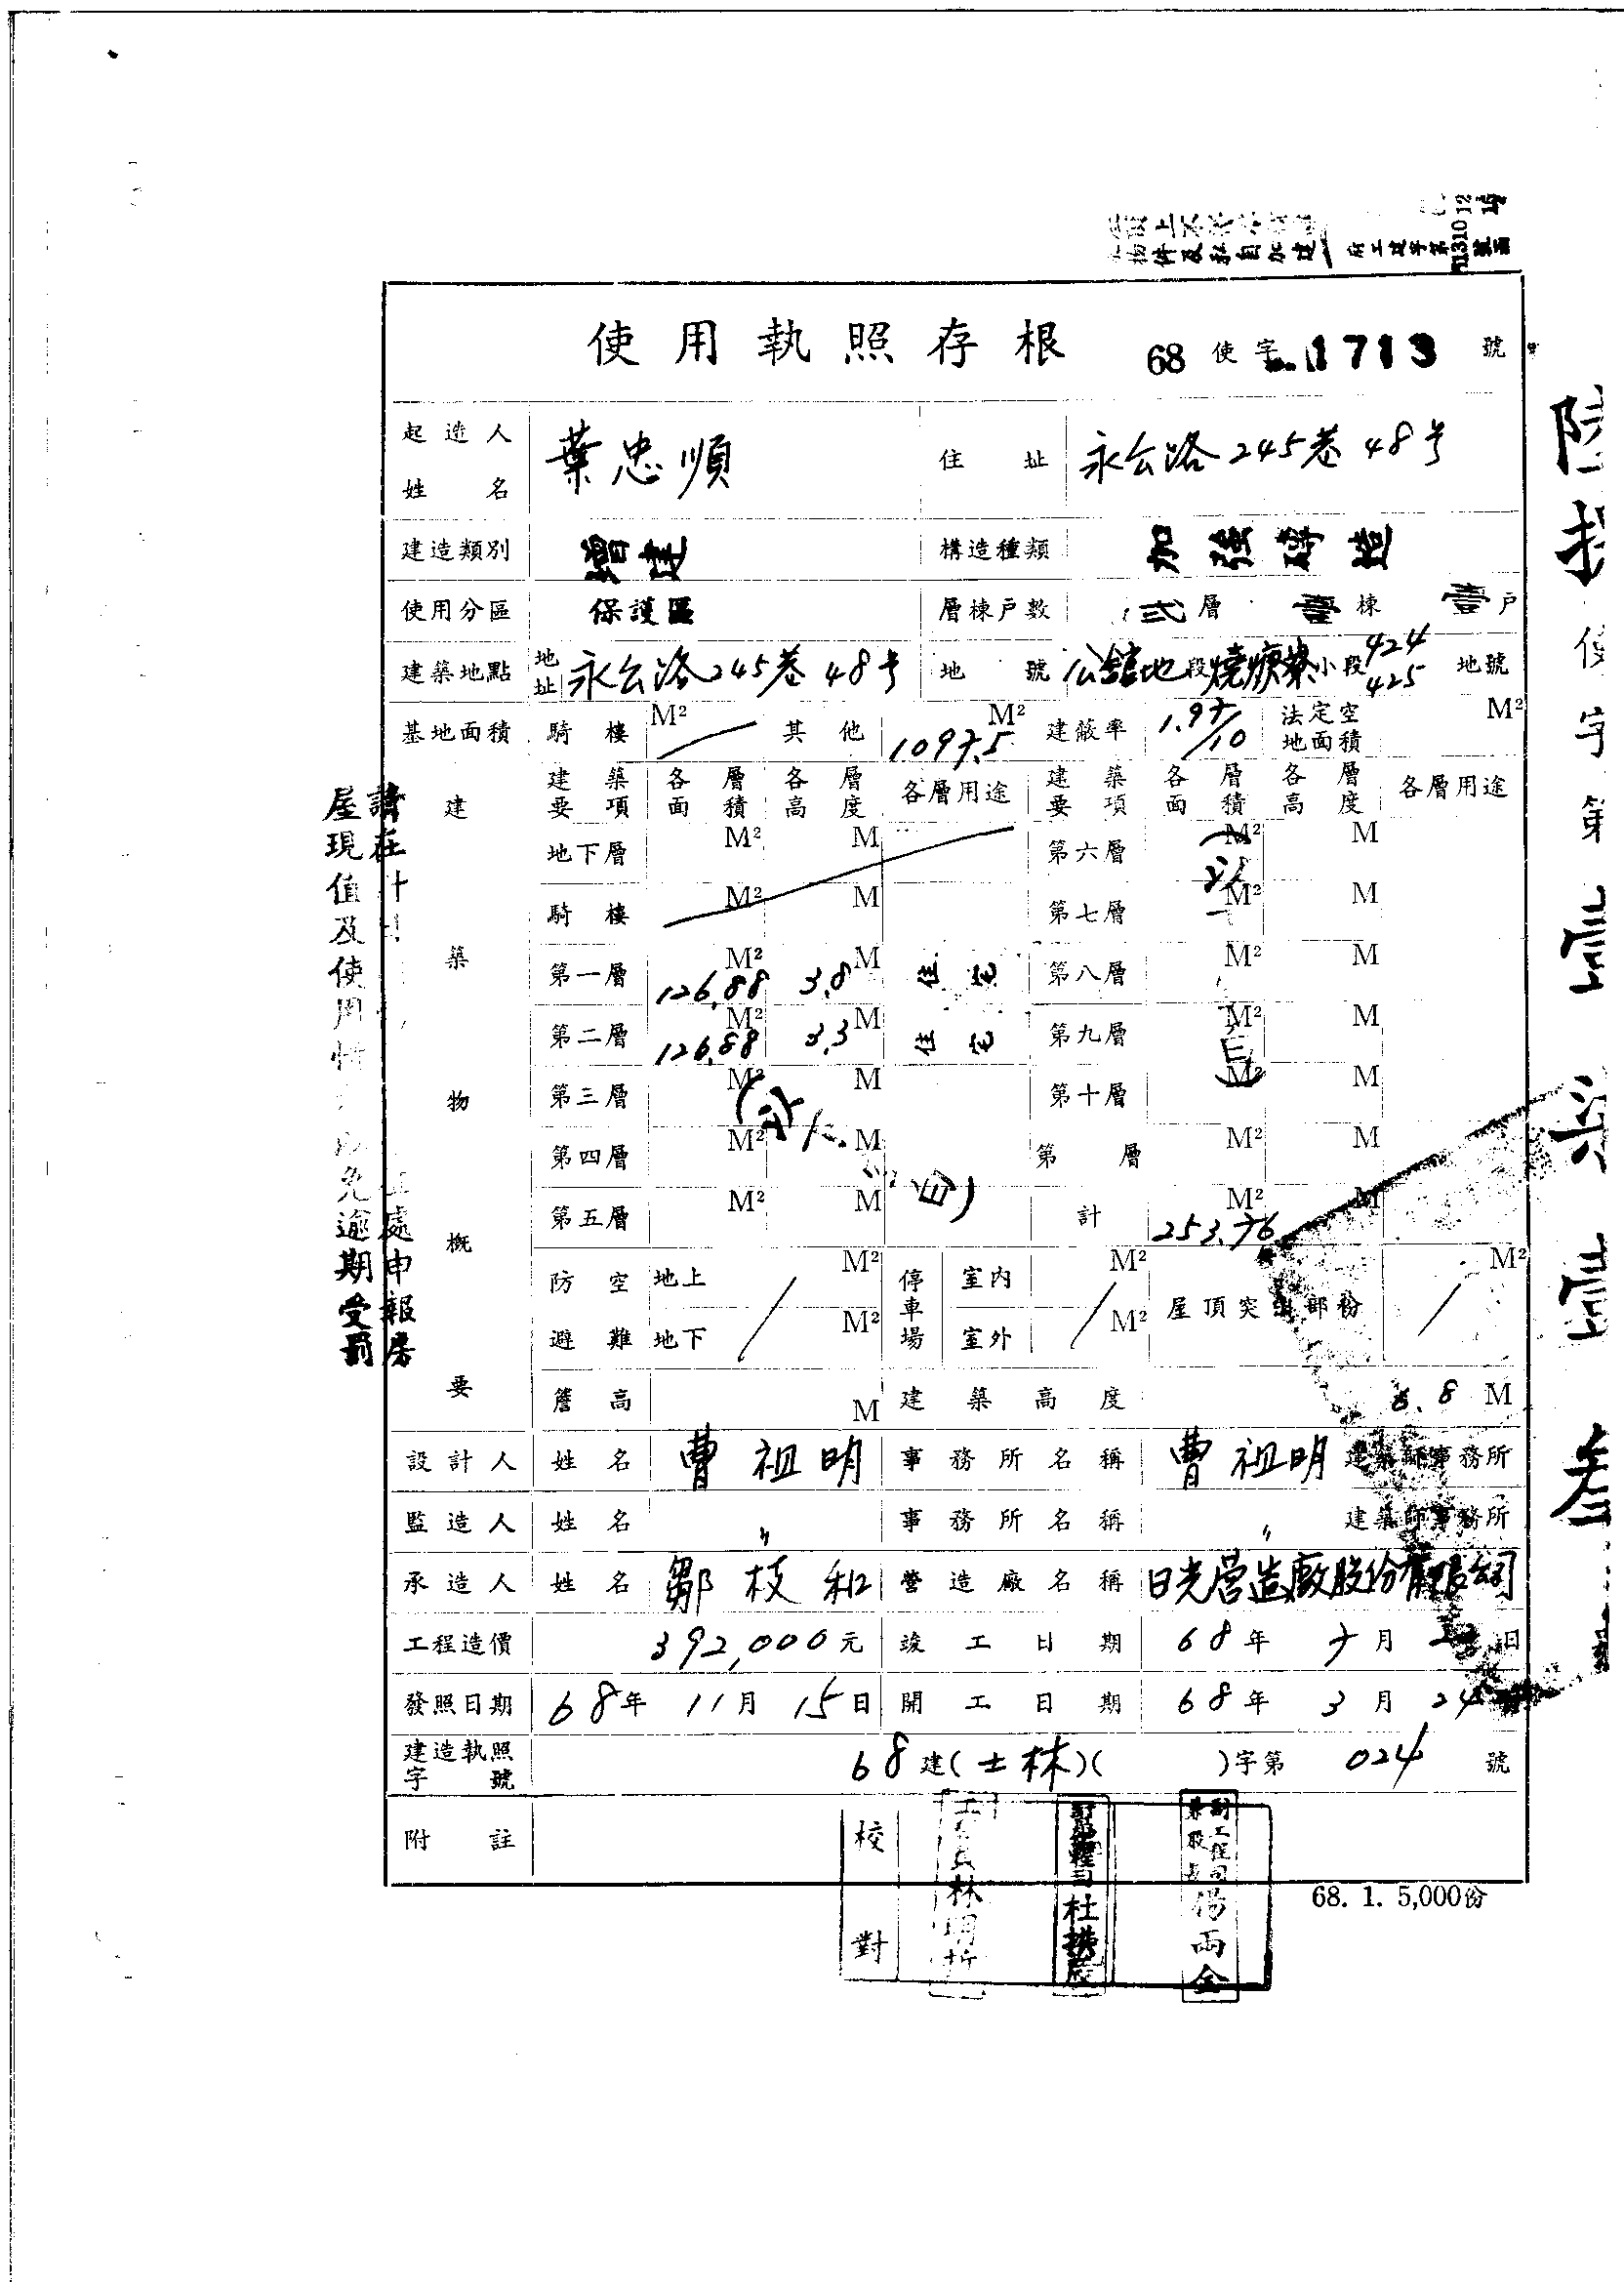 使用執照存根 68 使字 1713 號
起造人姓名 葉忠順 住址 永公路245巷48号
建造類別 增建 構造種類 加強磚造
使用分區 保護區 層棟戶數 弍層 壹棟 壹戶
建築地點 地址 永公路245巷48号 地號 公舘地段 小段 424 425 地號
基地面積 騎樓 M² 其他 M² 建蔽率 /10 法定空地面積 M²
建築物概要
建築要項 各層面積 各層高度 各層用途 建築要項 各層面積 各層高度 各層用途
地下層 M² M 第六層 M² M
騎樓 M² M 第七層 M² M
第一層 126.88 M² 3.8 M 住宅 第八層 M² M
第二層 126.88 M² 3.3 M 住宅 第九層 M² M
第三層 M² M 第十層 M² M
第四層 M² M 第 層 M² M
第五層 M² M 計 253.76 M² M
防空避難 地上 M² 停車場 室內 M² 屋頂突出部份 M²
地下 M² 室外 M²
簷高 M 建築高度 6.8 M
設計人 姓名 曹祖明 事務所名稱 曹祖明 建築師事務所
監造人 姓名 〃 事務所名稱 〃 建築師事務所
承造人 姓名 鄒枝和 營造廠名稱 日光营造廠股份有限公司
工程造價 392,000元 竣工日期 68年 7月 日
發照日期 68年 11月 15日 開工日期 68年 3月 24
建造執照字號 68建(士林)( )字第 024 號
附註
校對
林明
杜
副工程司兼股長楊兩全
68. 1. 5,000份
使字第壹柒壹叁
處申報房
屋現值及使用情
免逾期受罰